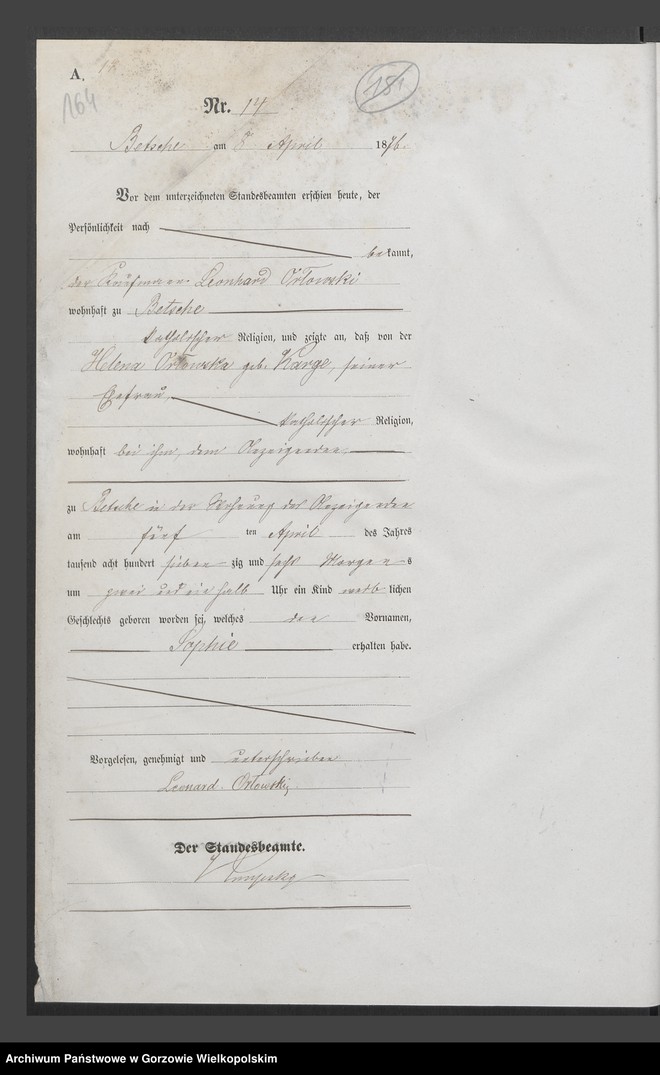 A.
164
181
Nr. 14
Betsche am 8 April 1876.
Vor dem unterzeichneten Standesbeamten erschien heute, der
Persönlichkeit nach
bekannt,
der Kaufmann Leonhard Orlowski
wohnhaft zu Betsche
katholischer Religion, und zeigte an, daß von der
Helena Orlowska geb. Karge, seiner
Ehefrau,
katholischer Religion,
wohnhaft bei ihm, dem Anzeigenden
zu Betsche in der Wohnung des Anzeigenden
am fünf ten April des Jahres
tausend acht hundert sieben zig und sechs Morgens
um zwei und ein halb Uhr ein Kind weiblichen
Geschlechts geboren worden sei, welches den Vornamen,
Sophie erhalten habe.
Vorgelesen, genehmigt und unterschrieben
Leonard Orlowski
Der Standesbeamte.
Archiwum Państwowe w Gorzowie Wielkopolskim